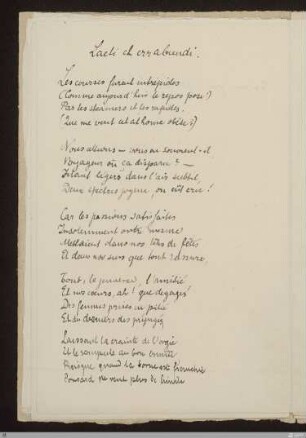 Laeti et errabundi.
Les courses furent intrépides
(Comme aujourd'hui le repos pèse!)
Par les steamers et les rapides.
(Que me veut cet at home obèse?)
Nous allions — vous en souvient-il
Voyageur où ça disparu? —
Filant légers dans l'air subtil,
Deux spectres joyeux, on eût cru!
Car les passions satisfaites
Insolemment outre mesure
Mettaient dans nos têtes des fêtes
Et dans nos sens que tout rassure,
Tout, la jeunesse, l'amitié
Et nos cœurs, ah! que dégagés
Des femmes prises en pitié
Et du dernier des préjugés
Laissant la crainte de l'orgie
Et le scrupule au bon ermite
Puisque quand la borne est franchie
Ponsard ne veut plus de limite